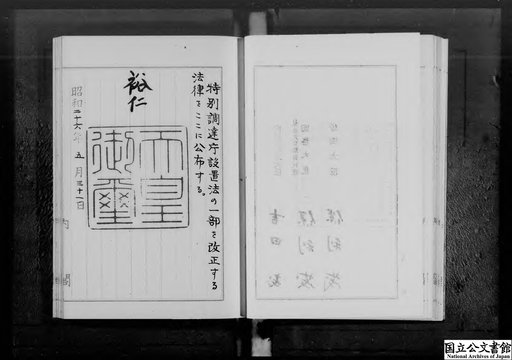 特別調達庁設置法の一部を改正する
法律をここに公布する。
裕仁
天皇
御璽
昭和二十六年五月三十一日
内閣
国立公文書館
National Archives of Japan